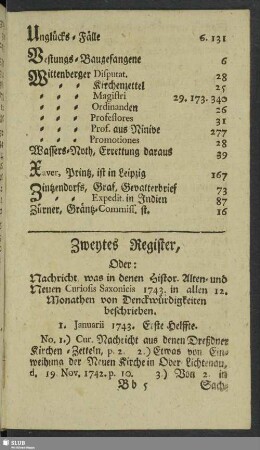 Unglücks-Fälle 6. 131
Vestungs-Baugefangene 6
Wittenberger Disputat. 28
- - Kirchenzettel 25
- - Magistri 29. 173. 340
- - Ordinanden 26
- - Professores 31
- - Prof. aus Ninive 277
- - Promotiones 28
Wassers-Noth, Errettung daraus 39
Xaver, Printz, ist in Leipzig 167
Zintzendorfs, Graf, Gevatterbrief 73
- - Expedit. in Indien 87
Zürner, Gräntz-Commiss. st. 16
Zweytes Register,
Oder:
Nachricht, was in denen Histor. Alten- und
Neuen Curiosis Saxonicis 1743. in allen 12.
Monathen von Denckwürdigkeiten
beschrieben.
1. Januarii 1743. Erste Helffte.
No. 1.) Cur. Nachricht aus denen Dreßdner
Kirchen-Zetteln, p. 2. 2.) Etwas von Ein-
weihung der Neuen Kirche in Ober Lichtenau,
d. 19 Nov. 1742. p. 10. 3.) Von 2. in
Bb 5 Sach-
SLUB